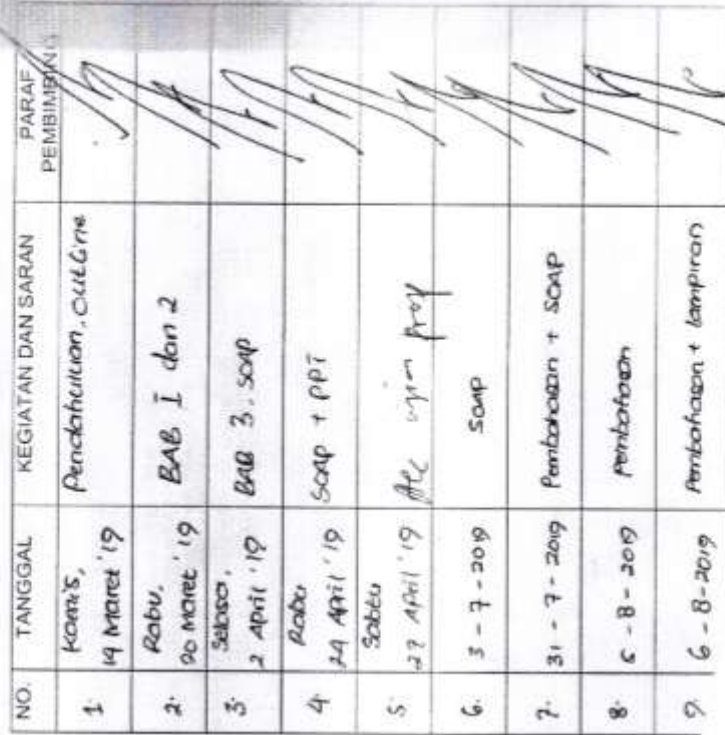 NO. TANGGAL KEGIATAN DAN SARAN PARAF PEMBIMBING
1. Kamis, 14 Maret '19 Pendahuluan, outline
2. Rabu, 20 Maret '19 BAB I dan 2
3. Selasa, 2 April '19 BAB 3, SOAP
4. Rabu 24 April '19 SOAP + PPT
5. Sabtu 27 April '19 Acc ujian prop
6. 3 - 7 - 2019 SOAP
7. 31 - 7 - 2019 Pembahasan + SOAP
8. 5 - 8 - 2019 pembahasan
9. 6 - 8 - 2019 Pembahasan + Lampiran